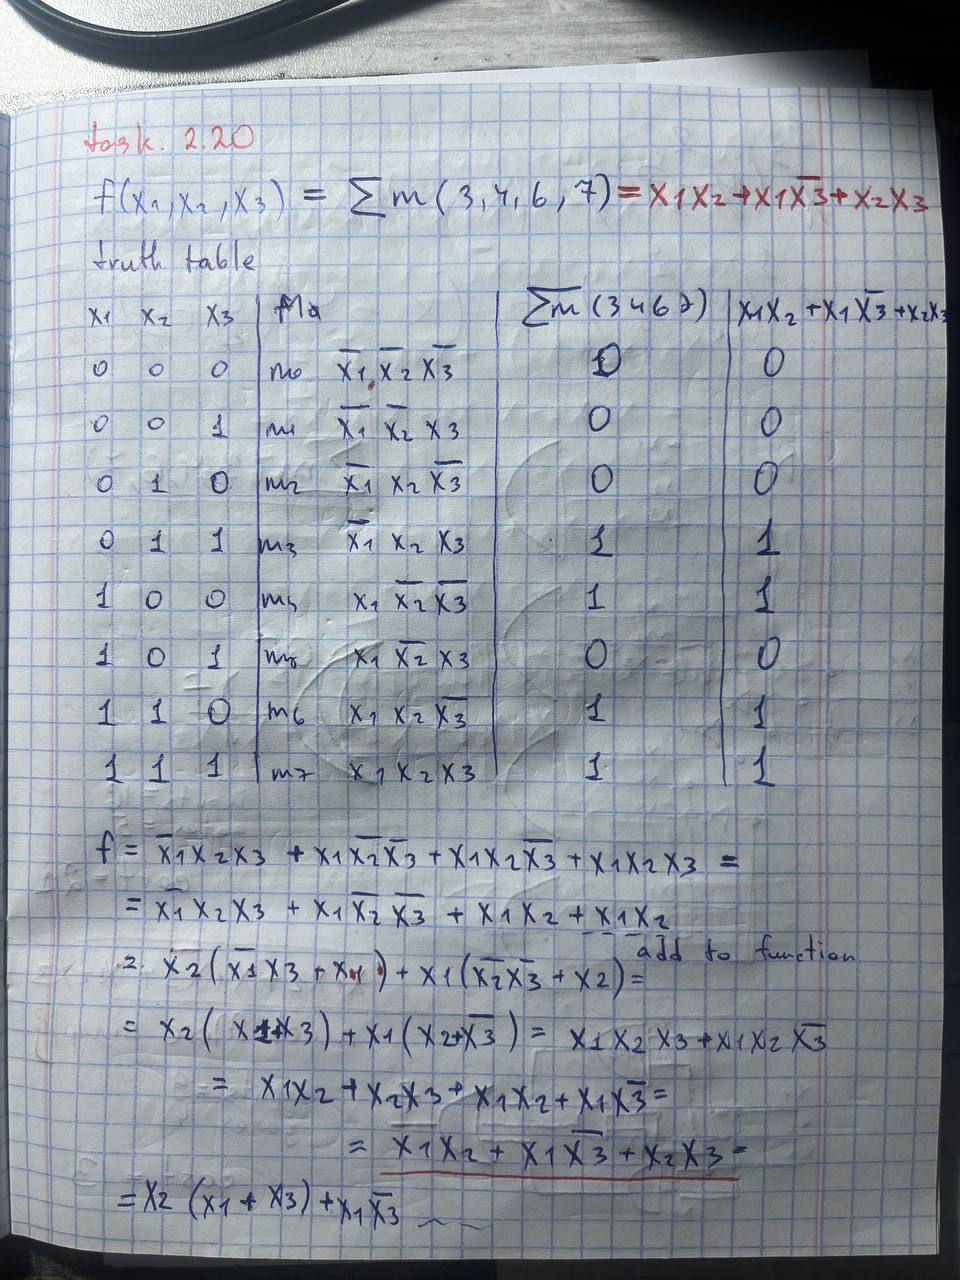 task. 2.20
f(x1,x2,x3) = ∑m(3,4,6,7) = x1x2+x1x̅3̅+x2x3
truth table
x1 x2 x3 | ∑m (3 4 6 7) | x1x2+x1x̅3̅+x2x3
0 0 0 | m0 x̅1̅ x̅2̅ x̅3̅ | 0 | 0
0 0 1 | m1 x̅1̅ x̅2̅ x3 | 0 | 0
0 1 0 | m2 x̅1̅ x2 x̅3̅ | 0 | 0
0 1 1 | m3 x̅1̅ x2 x3 | 1 | 1
1 0 0 | m4 x1 x̅2̅ x̅3̅ | 1 | 1
1 0 1 | m5 x1 x̅2̅ x3 | 0 | 0
1 1 0 | m6 x1 x2 x̅3̅ | 1 | 1
1 1 1 | m7 x1 x2 x3 | 1 | 1
f = x̅1̅x2x3 + x1x̅2̅x̅3̅ + x1x2x̅3̅ + x1x2x3 =
= x̅1̅x2x3 + x1x̅2̅x̅3̅ + x1x2 + x1x2
add to function
= x2(x̅1̅x3 + x1) + x1(x̅2̅x̅3̅ + x2) =
= x2(x1+x3) + x1(x2+x̅3̅) = x1x2x3+x1x2x̅3̅
= x1x2 + x2x3 + x1x2 + x1x̅3̅ =
= x1x2 + x1x̅3̅ + x2x3 =
= x2 (x1 + x3) + x1x̅3̅